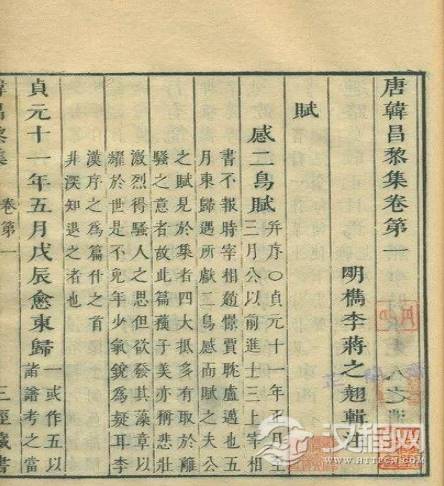 唐韓昌黎集卷第一
明檇李蔣之翹輯注
賦
感二鳥賦
并序〇貞元十一年正月至
三月公以前進士三上宰相
書不報時宰相趙憬賈耽盧邁也五
月東歸遇所獻二鳥感而賦之夫公
之賦見於集者四大抵多有取於離
騷之意者故此篇蘓子美亦稱悲壯
激烈得騷人之思但欲發其藻章以
耀於世是不免年少氣銳為疑耳李
漢序之為篇什之首
非深知退之者也
貞元十一年五月戊辰愈東歸
一或作五以
諸譜考之當
韓昌黎集
卷第一
三徑藏書
汉程网
HTTPCN.COM